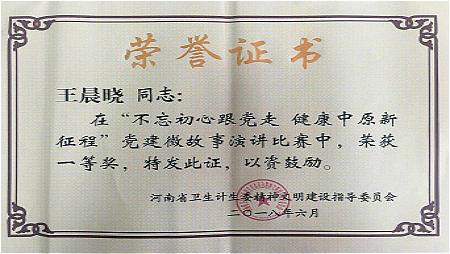 荣誉证书
王晨晓 同志:
在“不忘初心跟党走 健康中原新
征程”党建微故事演讲比赛中，荣获
一等奖，特发此证，以资鼓励。
河南省卫生计生委精神文明建设指导委员会
二〇一八年六月